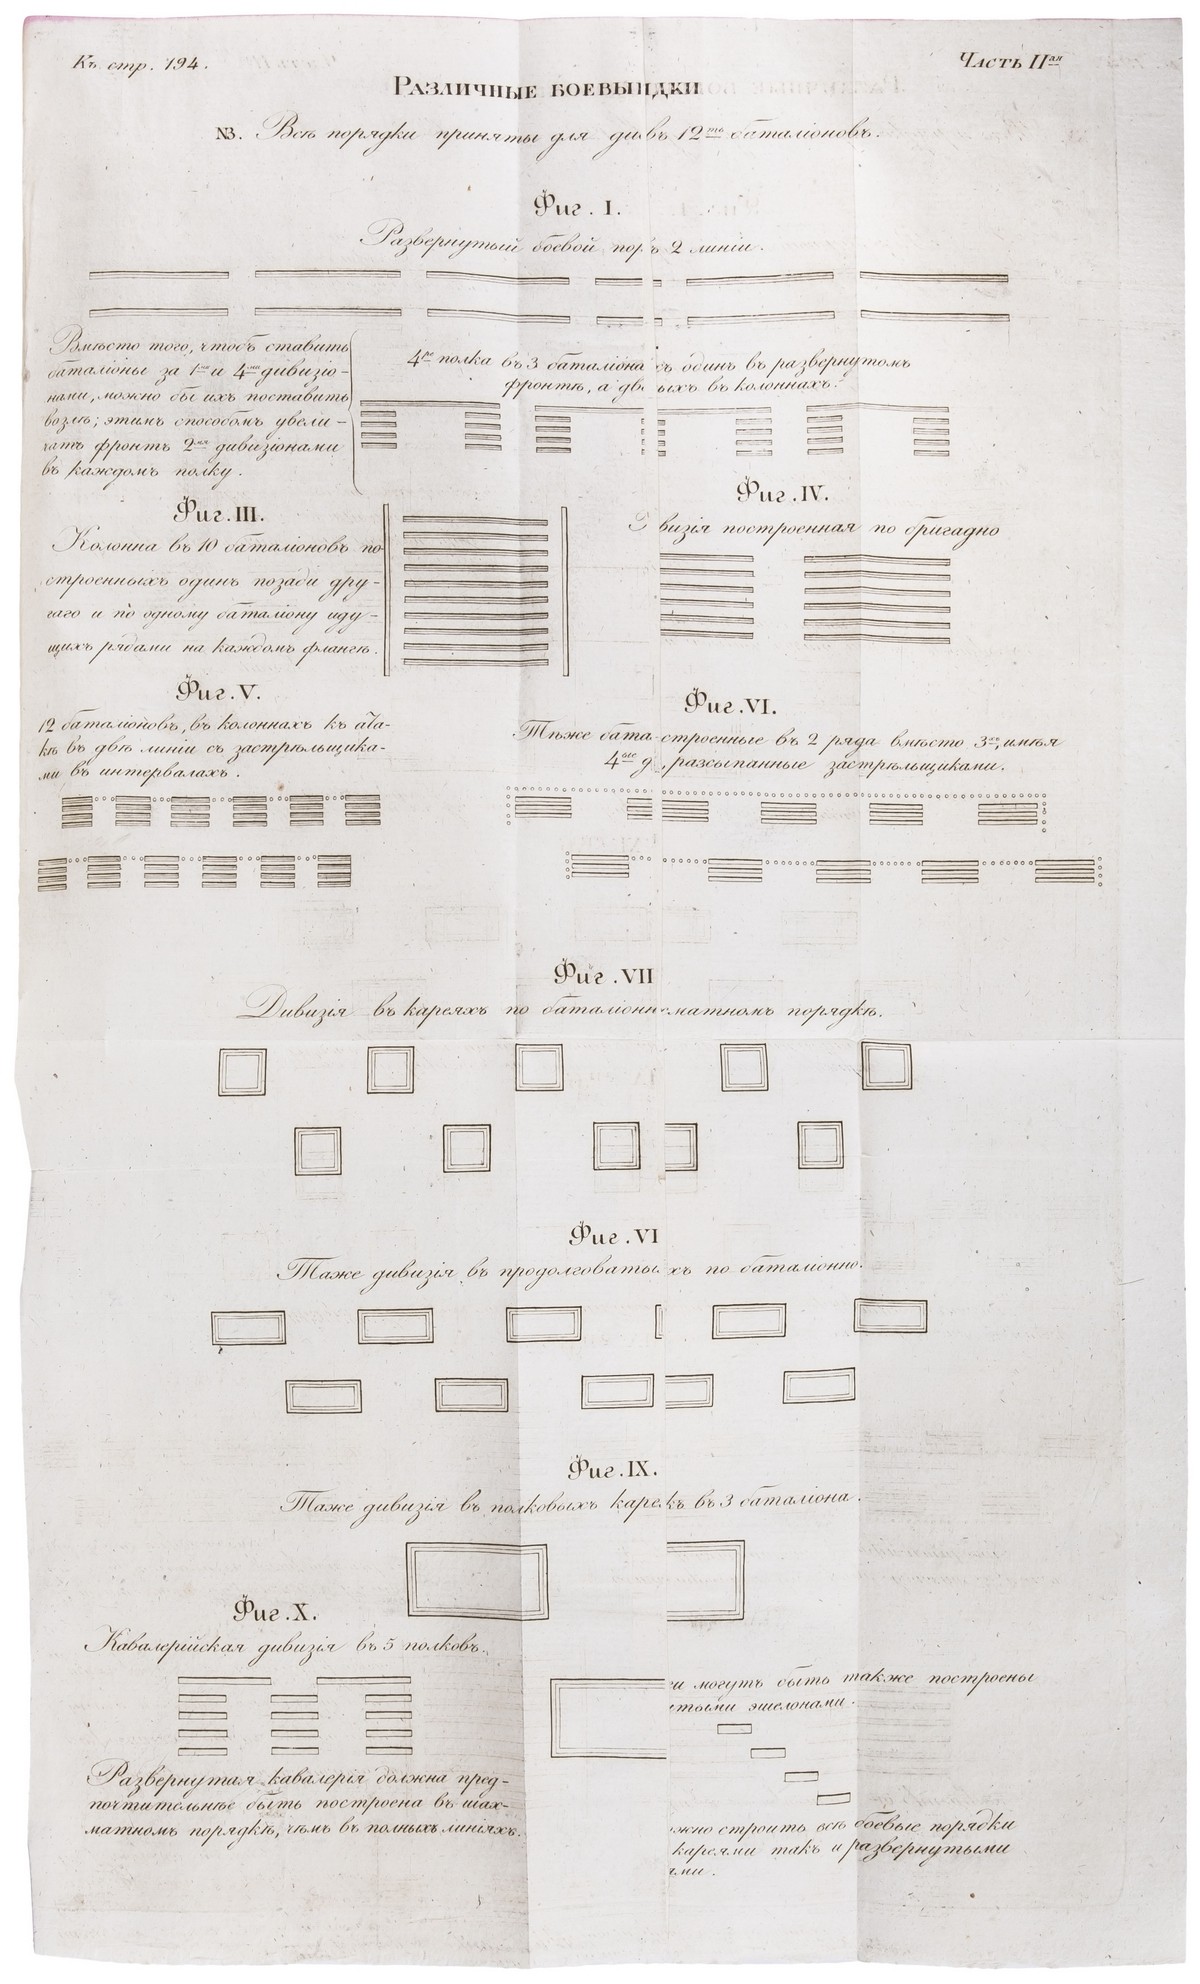 Къ стр. 194.
Часть IIая
Различные боевы
NЗ. Всѣ порядки приняты для 12ть баталіоновъ.
Фиг. I.
Развернутый боевой 2 линіи.
Вмѣсто того, чтобъ ставить
баталіоны за 1ми и 4ми дивизіо-
нами, можно бы ихъ поставить
возлѣ; этимъ способомъ увели-
чатъ фронтъ 2мя дивизіонами
въ каждомъ полку.
4ре полка въ 3 баталіона одинъ въ развернутомъ
фронтѣ, а въ колоннахъ.
Фиг. III.
Колонна въ 10 баталіоновъ по
строенныхъ одинъ позади дру-
гаго и по одному баталіону иду-
щихъ рядами на каждомъ флангѣ.
Фиг. IV.
визія построенная по бригадно
Фиг. V.
12 баталіоновъ, въ колоннахъ къ ата-
кѣ въ двѣ линіи съ застрѣльщика-
ми въ интервалахъ.
Фиг. VI.
Тѣже бата строенные въ 2 ряда вмѣсто 3хъ, имѣя
4ые д , разсыпанные застрѣльщиками.
Фиг. VII
Дивизія въ кареяхъ по баталіонн матномъ порядкѣ.
Фиг. VI
Таже дивизія въ продолговаты хъ по баталіонно.
Фиг. IX.
Таже дивизія въ полковыхъ каре въ 3 баталіона.
Фиг. X.
Кавалерійская дивизія въ 5 полковъ.
Развернутая кавалерія должна пред-
почтительнѣе быть построена въ шах-
матномъ порядкѣ, чѣмъ въ полныхъ линіяхъ.
и могутъ быть также построены
тыми эшелонами.
жно строить всѣ боевые порядки
кареями такъ и развернутыми
ями.